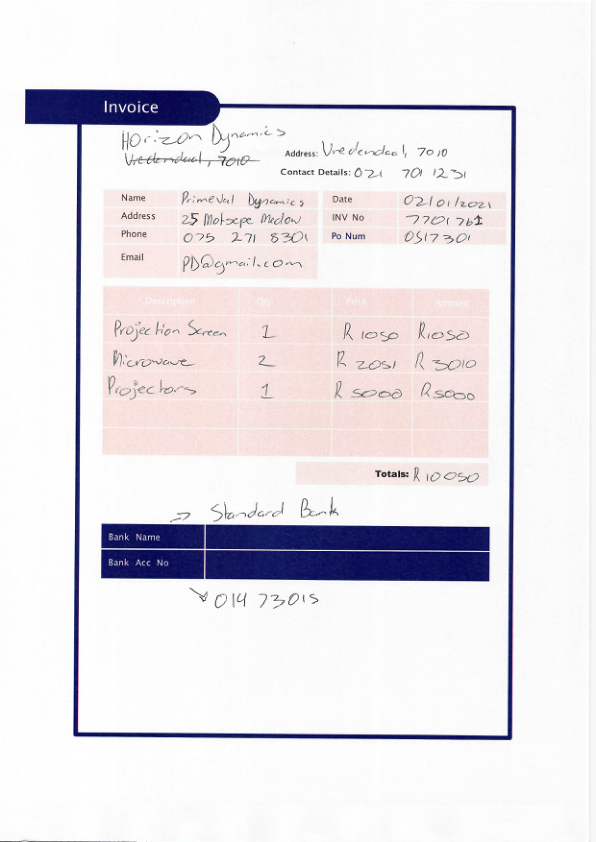 Invoice
Horizon Dynamics
Vredendaal, 7010
Address: Vredendaal, 7010
Contact Details: 021 701 1231
Name PrimeVal Dynamics
Address 25 Motsepe Medow
Phone 075 271 8301
Email PD@gmail.com
Date 02/01/2021
INV No 7701761
Po Num 0517301
Description Qty Price Amount
Projection Screen 1 R 1050 R1050
Microwave 2 R 2051 R 3010
Projectors 1 R 5000 R5000
Totals: R10050
→ Standard Bank
Bank Name
Bank Acc No
014 73015